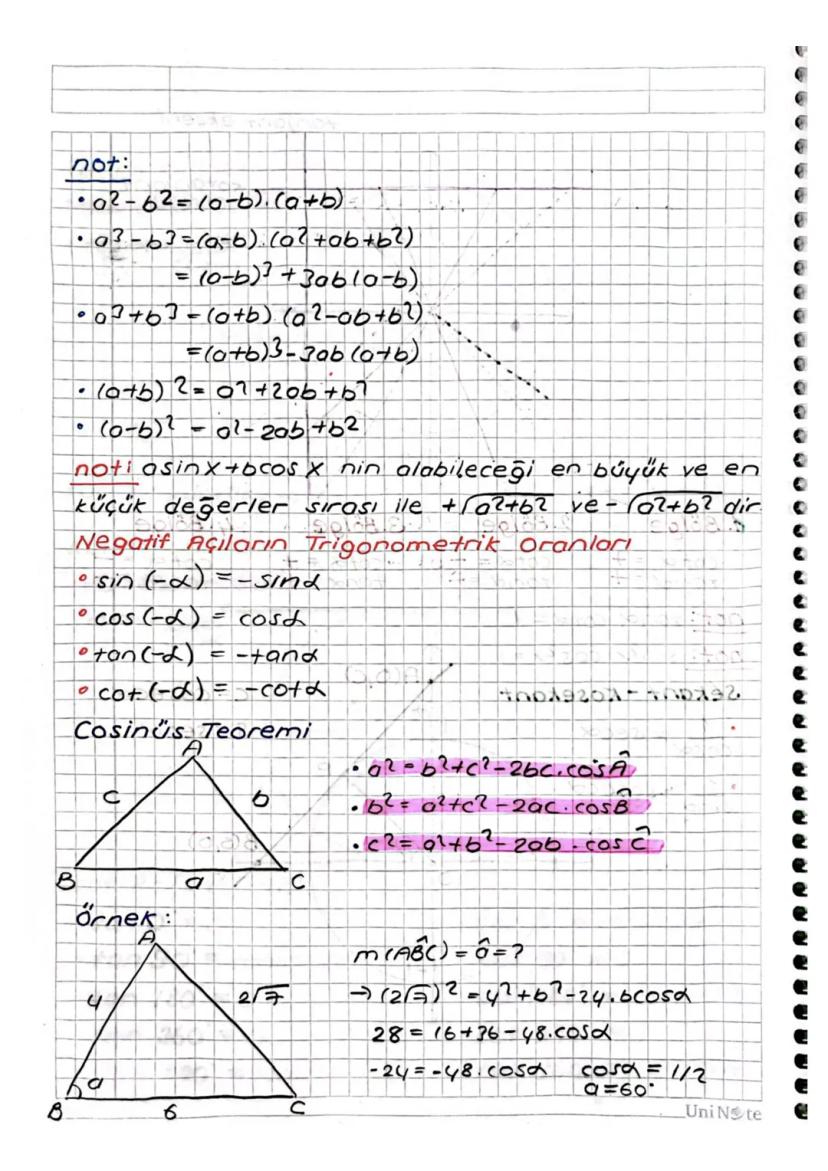 not:
• a² - b² = (a-b).(a+b)
• a³ - b³ = (a-b).(a² + ab + b²)
= (a-b)³ + 3ab(a-b)
• a³ + b³ = (a+b).(a² - ab + b²)
= (a+b)³ - 3ab(a+b)
• (a+b)² = a² + 2ab + b²
• (a-b)² = a² - 2ab + b²
not: asinx + bcosx nin alabileceği en büyük ve en
küçük değerler sırası ile +√a²+b² ve -√a²+b² dir.
Negatif Açıların Trigonometrik Oranları
• sin(-α) = -sinα
• cos(-α) = cosα
• tan(-α) = -tanα
• cot(-α) = -cotα
Cosinüs Teoremi
A
c b
B a C
• a² = b² + c² - 2bc.cosÂ
• b² = a² + c² - 2ac.cosB̂
• c² = a² + b² - 2ab.cosĈ
Örnek:
A
4 2√7
a
B 6 C
m(AB̂C) = â = ?
→ (2√7)² = 4² + b² - 24.bcosα
28 = 16 + 36 - 48.cosα
-24 = -48.cosα cosα = 1/2
a = 60°
UniNote